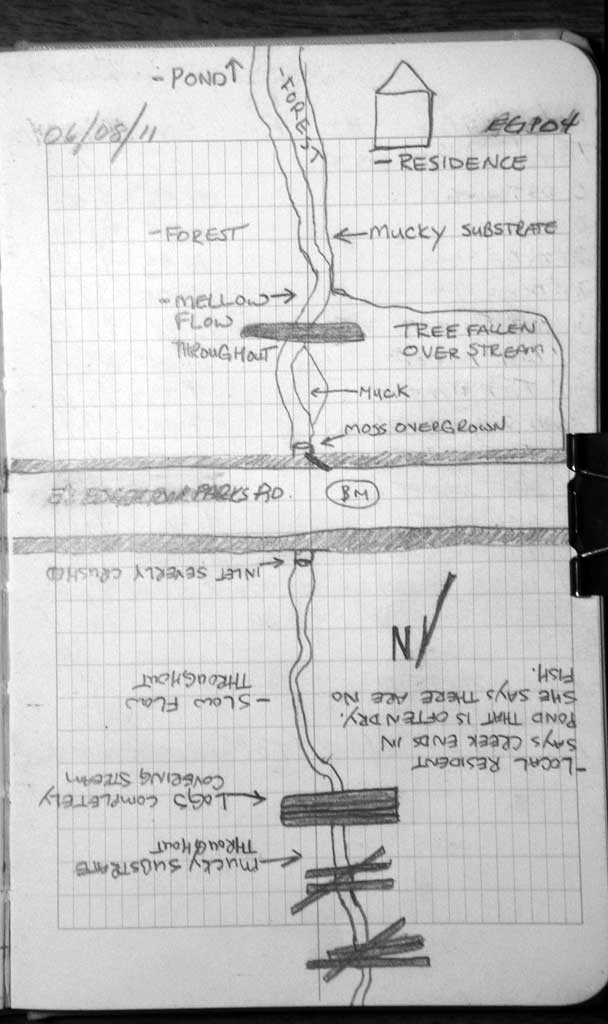 - POND ↑
- FOREST
06/08/11
EGP04
- RESIDENCE
- FOREST
← MUCKY SUBSTRATE
- MELLOW →
FLOW
THROUGHOUT
TREE FALLEN
OVER STREAM.
← MUCK
← MOSS OVERGROWN
PARKS RD.
BM
INLET SEVERLY CRUSHED
N
- SLOW FLOW
THROUGHOUT
- LOCAL RESIDENT
SAYS CREEK ENDS IN
POND THAT IS OFTEN DRY.
SHE SAYS THERE ARE NO
FISH.
LOGS COMPLETELY
COVERING STREAM
MUCKY SUBSTRATE
THROUGHOUT